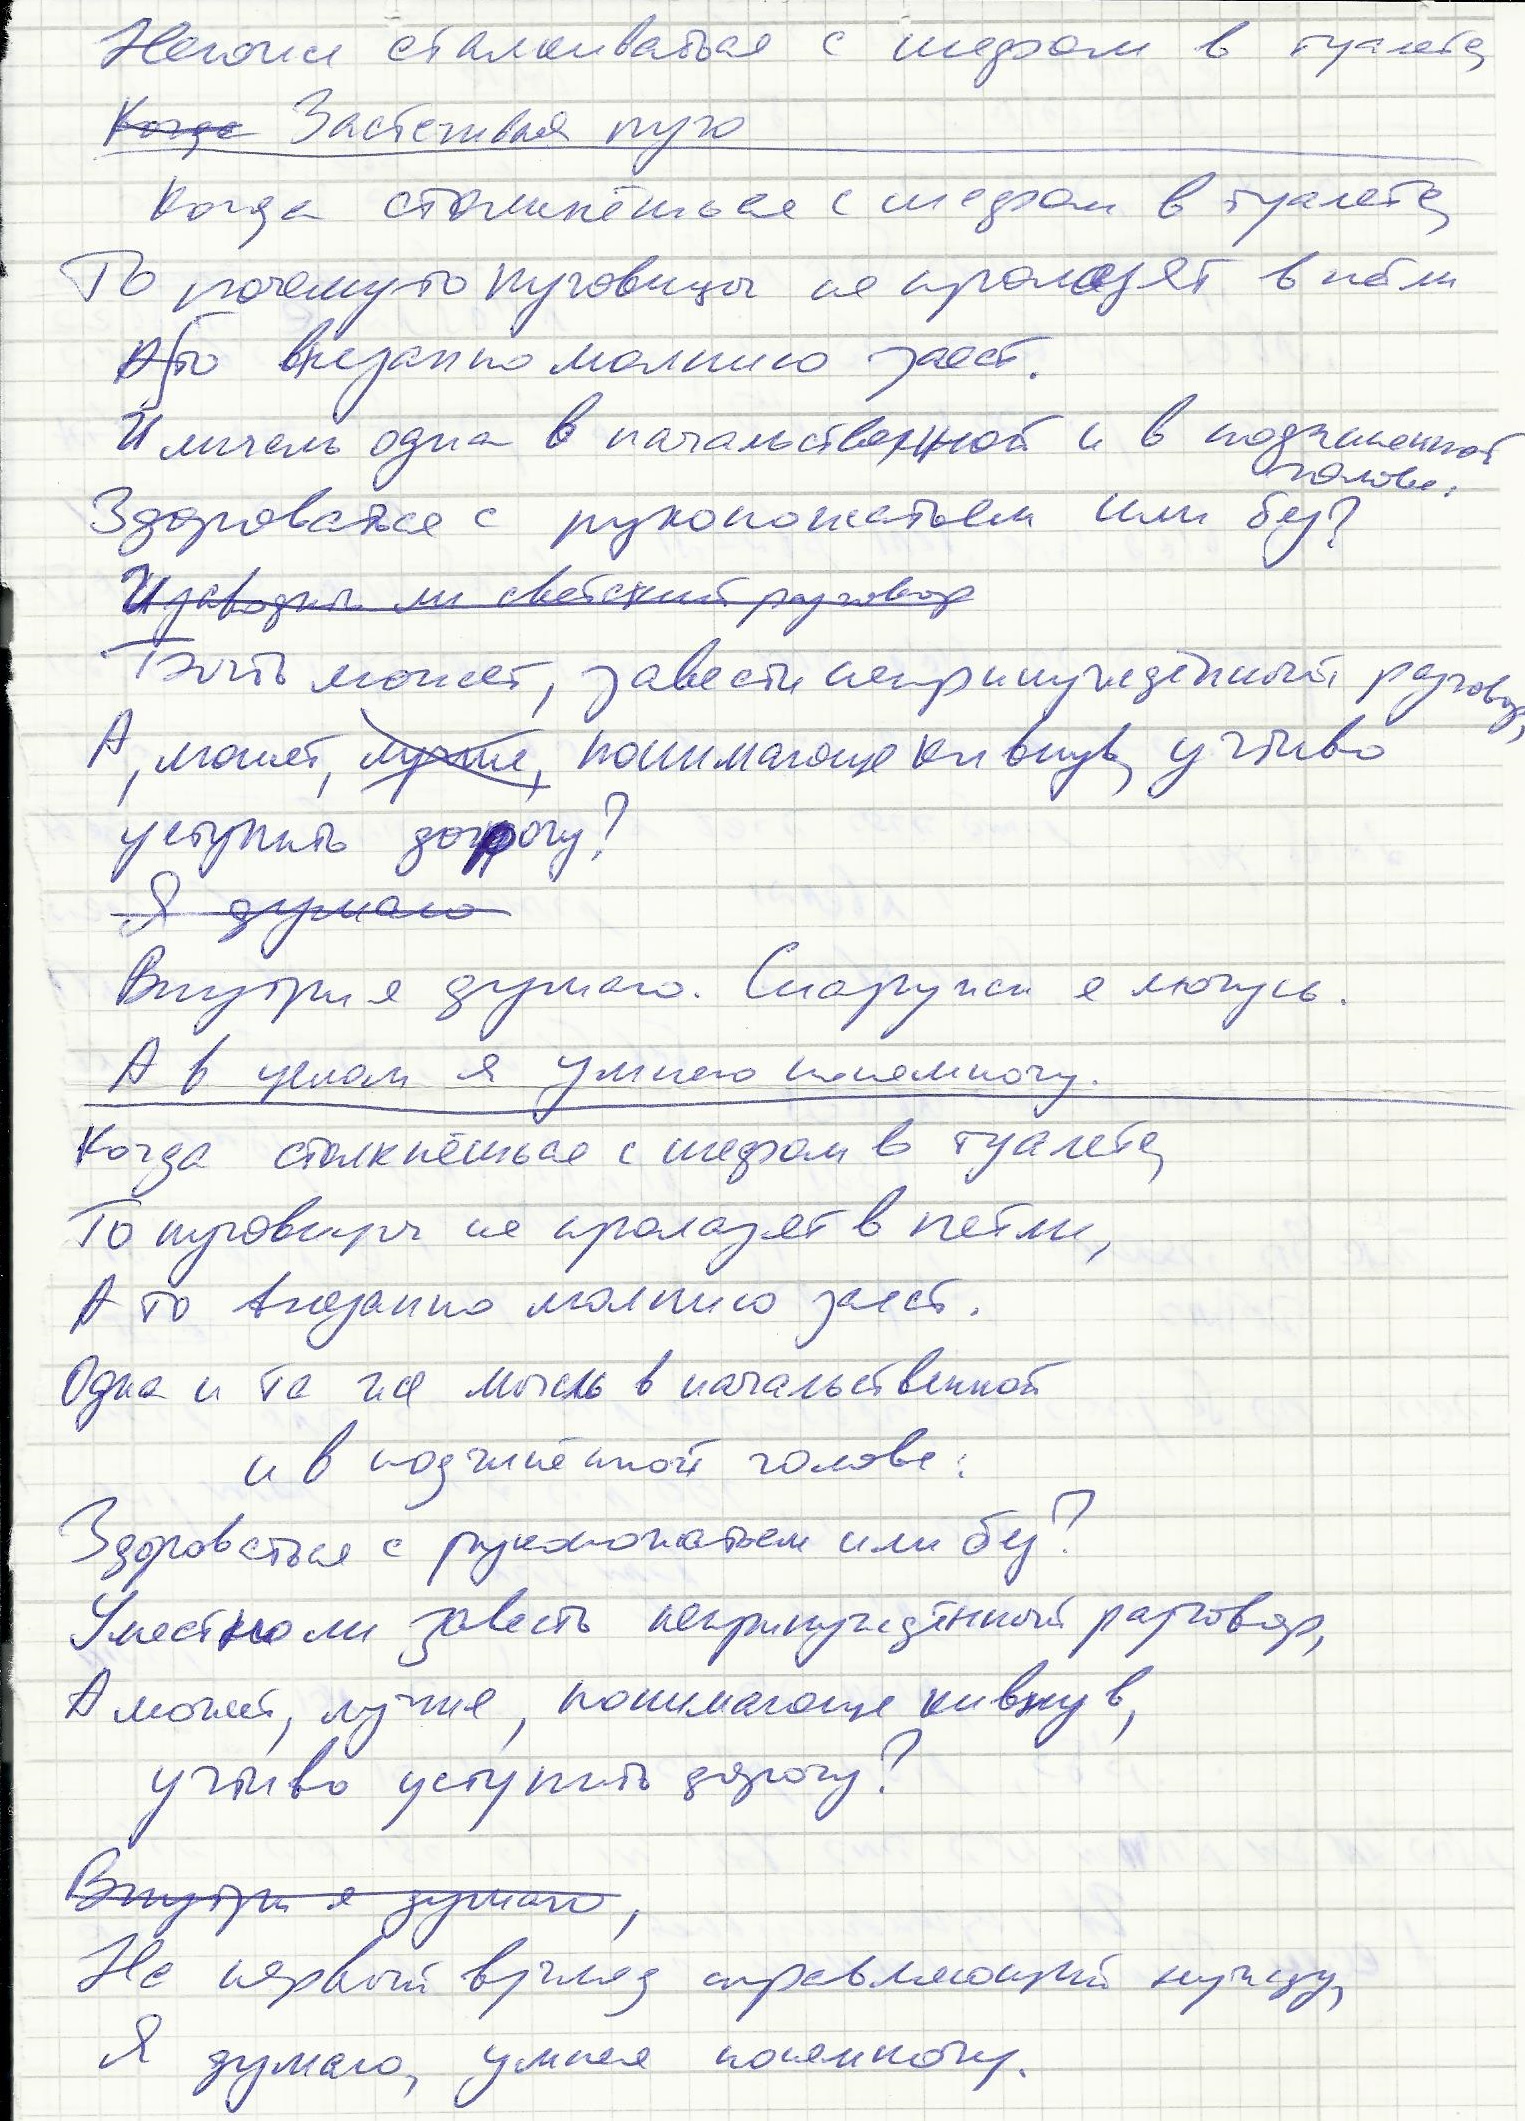 Неловко сталкиваться с шефом в туалете,
Когда Застегивая пуго
Когда столкнёшься с шефом в туалете,
То почему то пуговицы не пролезут в петли
А то внезапно молнию заест.
И мысль одна в начальственной и в подчиненной
голове:
Здороваться с рукопожатьем или без?
И заводить ли светский разговор
Быть может, завести непринуждённый разговор,
А, может, лучше, понимающе кивнув, учтиво
уступить дорогу?
Я думаю
Внутри я думаю. Снаружи я мочусь.
А в целом я умнею понемногу.
Когда столкнёшься с шефом в туалете,
То пуговицы не пролазят в петли,
А то внезапно молнию заест.
Одна и та же мысль в начальственной
и в подчинённой голове:
Здороваться с рукопожатьем или без?
Уместно ли завесть непринуждённый разговор,
А может, лучше, понимающе кивнув,
учтиво уступить дорогу?
Внутри я думаю,
На первый взгляд справляющий нужду,
Я думаю, умнея понемногу.